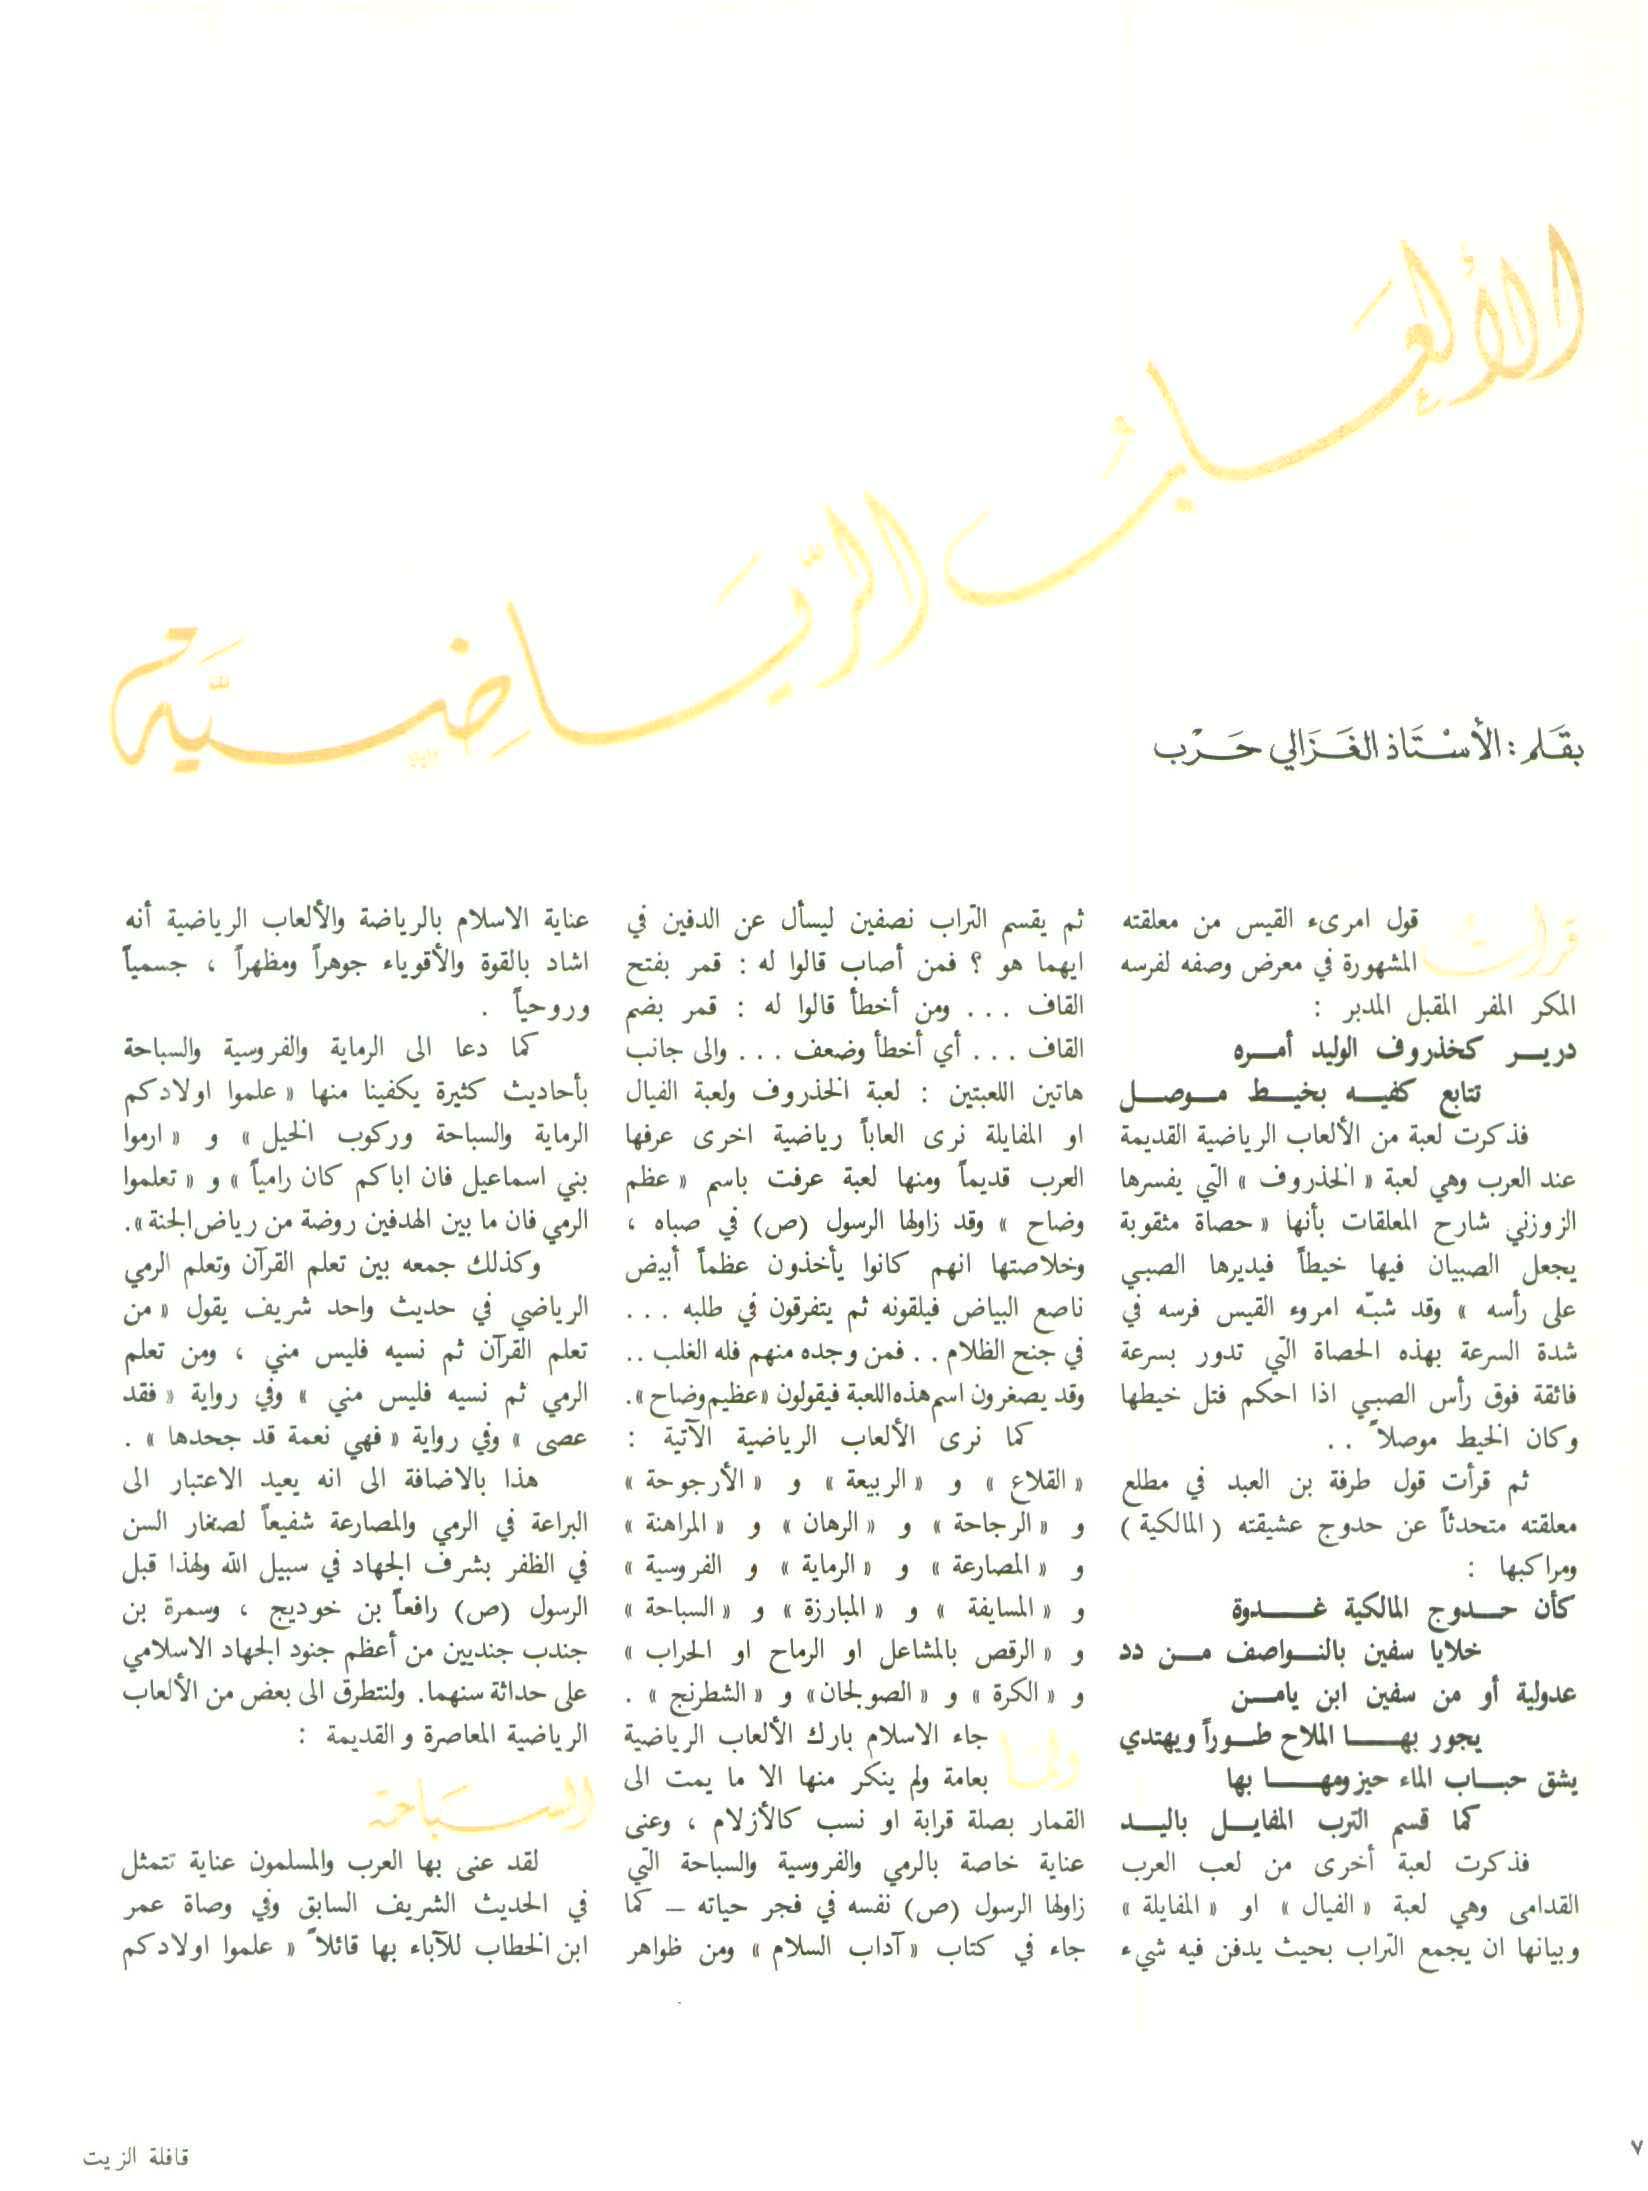 الألعاب الرياضية
بقلم : الأستاذ الغزالي حرب
قرأت قول امرىء القيس من معلقته
المشهورة في معرض وصفه لفرسه
المكر المفر المقبل المدبر :
درير كخذروف الوليد أمره
تتابع كفيه بخيط موصل
فذكرت لعبة من الألعاب الرياضية القديمة
عند العرب وهي لعبة « الخذروف » التي يفسرها
الزوزني شارح المعلقات بأنها « حصاة مثقوبة
يجعل الصبيان فيها خيطاً فيديرها الصبي
على رأسه » وقد شبّه امروء القيس فرسه في
شدة السرعة بهذه الحصاة التي تدور بسرعة
فائقة فوق رأس الصبي اذا احكم فتل خيطها
وكان الخيط موصلاً ..
ثم قرأت قول طرفة بن العبد في مطلع
معلقته متحدثاً عن حدوج عشيقته ( المالكية )
ومراكبها :
كأن حدوج المالكية غدوة
خلايا سفين بالنواصف من دد
عدولية أو من سفين ابن يامن
يجور بها الملاح طوراً ويهتدي
يشق حباب الماء حيزومها بها
كما قسم الترب المفايل باليد
فذكرت لعبة أخرى من لعب العرب
القدامى وهي لعبة « الفيال » او « المفايلة »
وبيانها ان يجمع التراب بحيث يدفن فيه شيء
ثم يقسم التراب نصفين ليسأل عن الدفين في
ايهما هو ؟ فمن أصاب قالوا له : قمر بفتح
القاف ... ومن أخطأ قالوا له : قمر بضم
القاف ... أي أخطأ وضعف ... والى جانب
هاتين اللعبتين : لعبة الخذروف ولعبة الفيال
او المفايلة نرى العاباً رياضية اخرى عرفها
العرب قديماً ومنها لعبة عرفت باسم « عظم
وضاح » وقد زاولها الرسول (ص) في صباه ،
وخلاصتها انهم كانوا يأخذون عظماً أبيض
ناصع البياض فيلقونه ثم يتفرقون في طلبه ...
في جنح الظلام .. فمن وجده منهم فله الغلب ..
وقد يصغرون اسم هذه اللعبة فيقولون «عظيم وضاح».
كما نرى الألعاب الرياضية الآتية :
« القلاع » و « الربيعة » و « الأرجوحة »
و « الرجاحة » و « الرهان » و « المراهنة »
و « المصارعة » و « الرماية » و « الفروسية »
و « المسايفة » و « المبارزة » و « السباحة »
و « الرقص بالمشاعل او الرماح او الحراب »
و « الكرة » و « الصولجان» و « الشطرنج » .
ولما جاء الاسلام بارك الألعاب الرياضية
بعامة ولم ينكر منها الا ما يمت الى
القمار بصلة قرابة او نسب كالأزلام ، وعنى
عناية خاصة بالرمي والفروسية والسباحة التي
زاولها الرسول (ص) نفسه في فجر حياته – كما
جاء في كتاب « آداب السلام » ومن ظواهر
عناية الاسلام بالرياضة والألعاب الرياضية أنه
اشاد بالقوة والأقوياء جوهراً ومظهراً ، جسمياً
وروحياً .
كما دعا الى الرماية والفروسية والسباحة
بأحاديث كثيرة يكفينا منها « علموا اولادكم
الرماية والسباحة وركوب الخيل » و « ارموا
بني اسماعيل فان اباكم كان رامياً » و « تعلموا
الرمي فان ما بين الهدفين روضة من رياض الجنة ».
وكذلك جمعه بين تعلم القرآن وتعلم الرمي
الرياضي في حديث واحد شريف يقول « من
تعلم القرآن ثم نسيه فليس مني ، ومن تعلم
الرمي ثم نسيه فليس مني » وفي رواية « فقد
عصى » وفي رواية « فهي نعمة قد جحدها » .
هذا بالاضافة الى انه يعيد الاعتبار الى
البراعة في الرمي والمصارعة شفيعاً لصغار السن
في الظفر بشرف الجهاد في سبيل الله ولهذا قبل
الرسول (ص) رافعاً بن خوديج ، وسمرة بن
جندب جنديين من أعظم جنود الجهاد الاسلامي
على حداثة سنهما. ولنتطرق الى بعض من الألعاب
الرياضية المعاصرة والقديمة :
السباحة
لقد عنى بها العرب والمسلمون عناية تتمثل
في الحديث الشريف السابق وفي وصاة عمر
ابن الخطاب للآباء بها قائلاً « علموا اولادكم
٧
قافلة الزيت